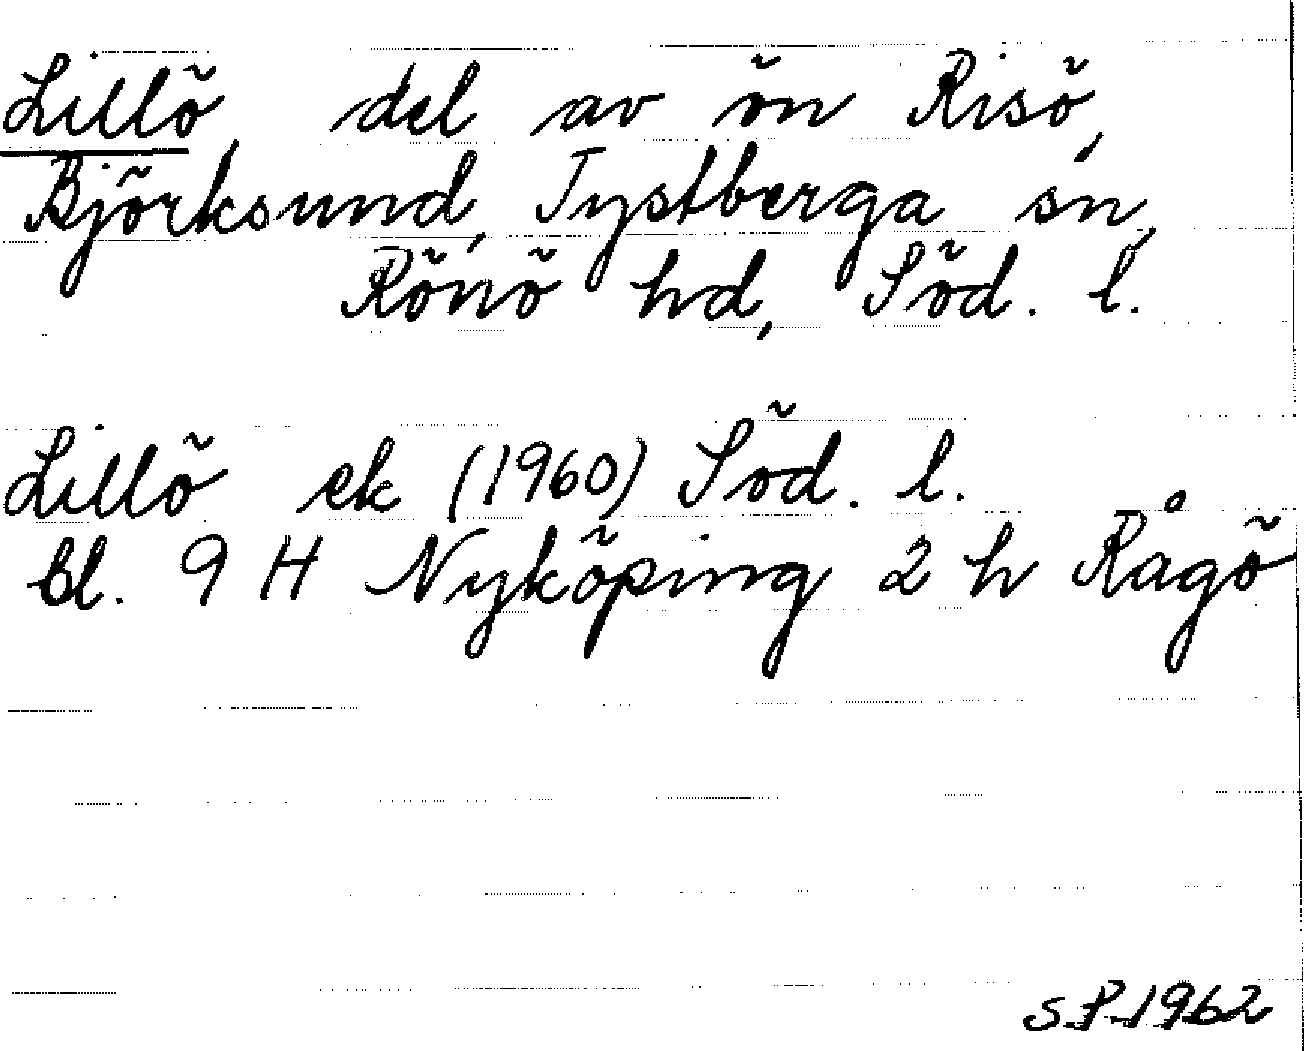 Lillö, del av ön Risö,
Björksund, Tystberga sn,
Rönö hd, Söd. l.
Lillö ek (1960) Söd. l.
bl. 9 H Nyköping 2 h Rågö
S.P. 1962